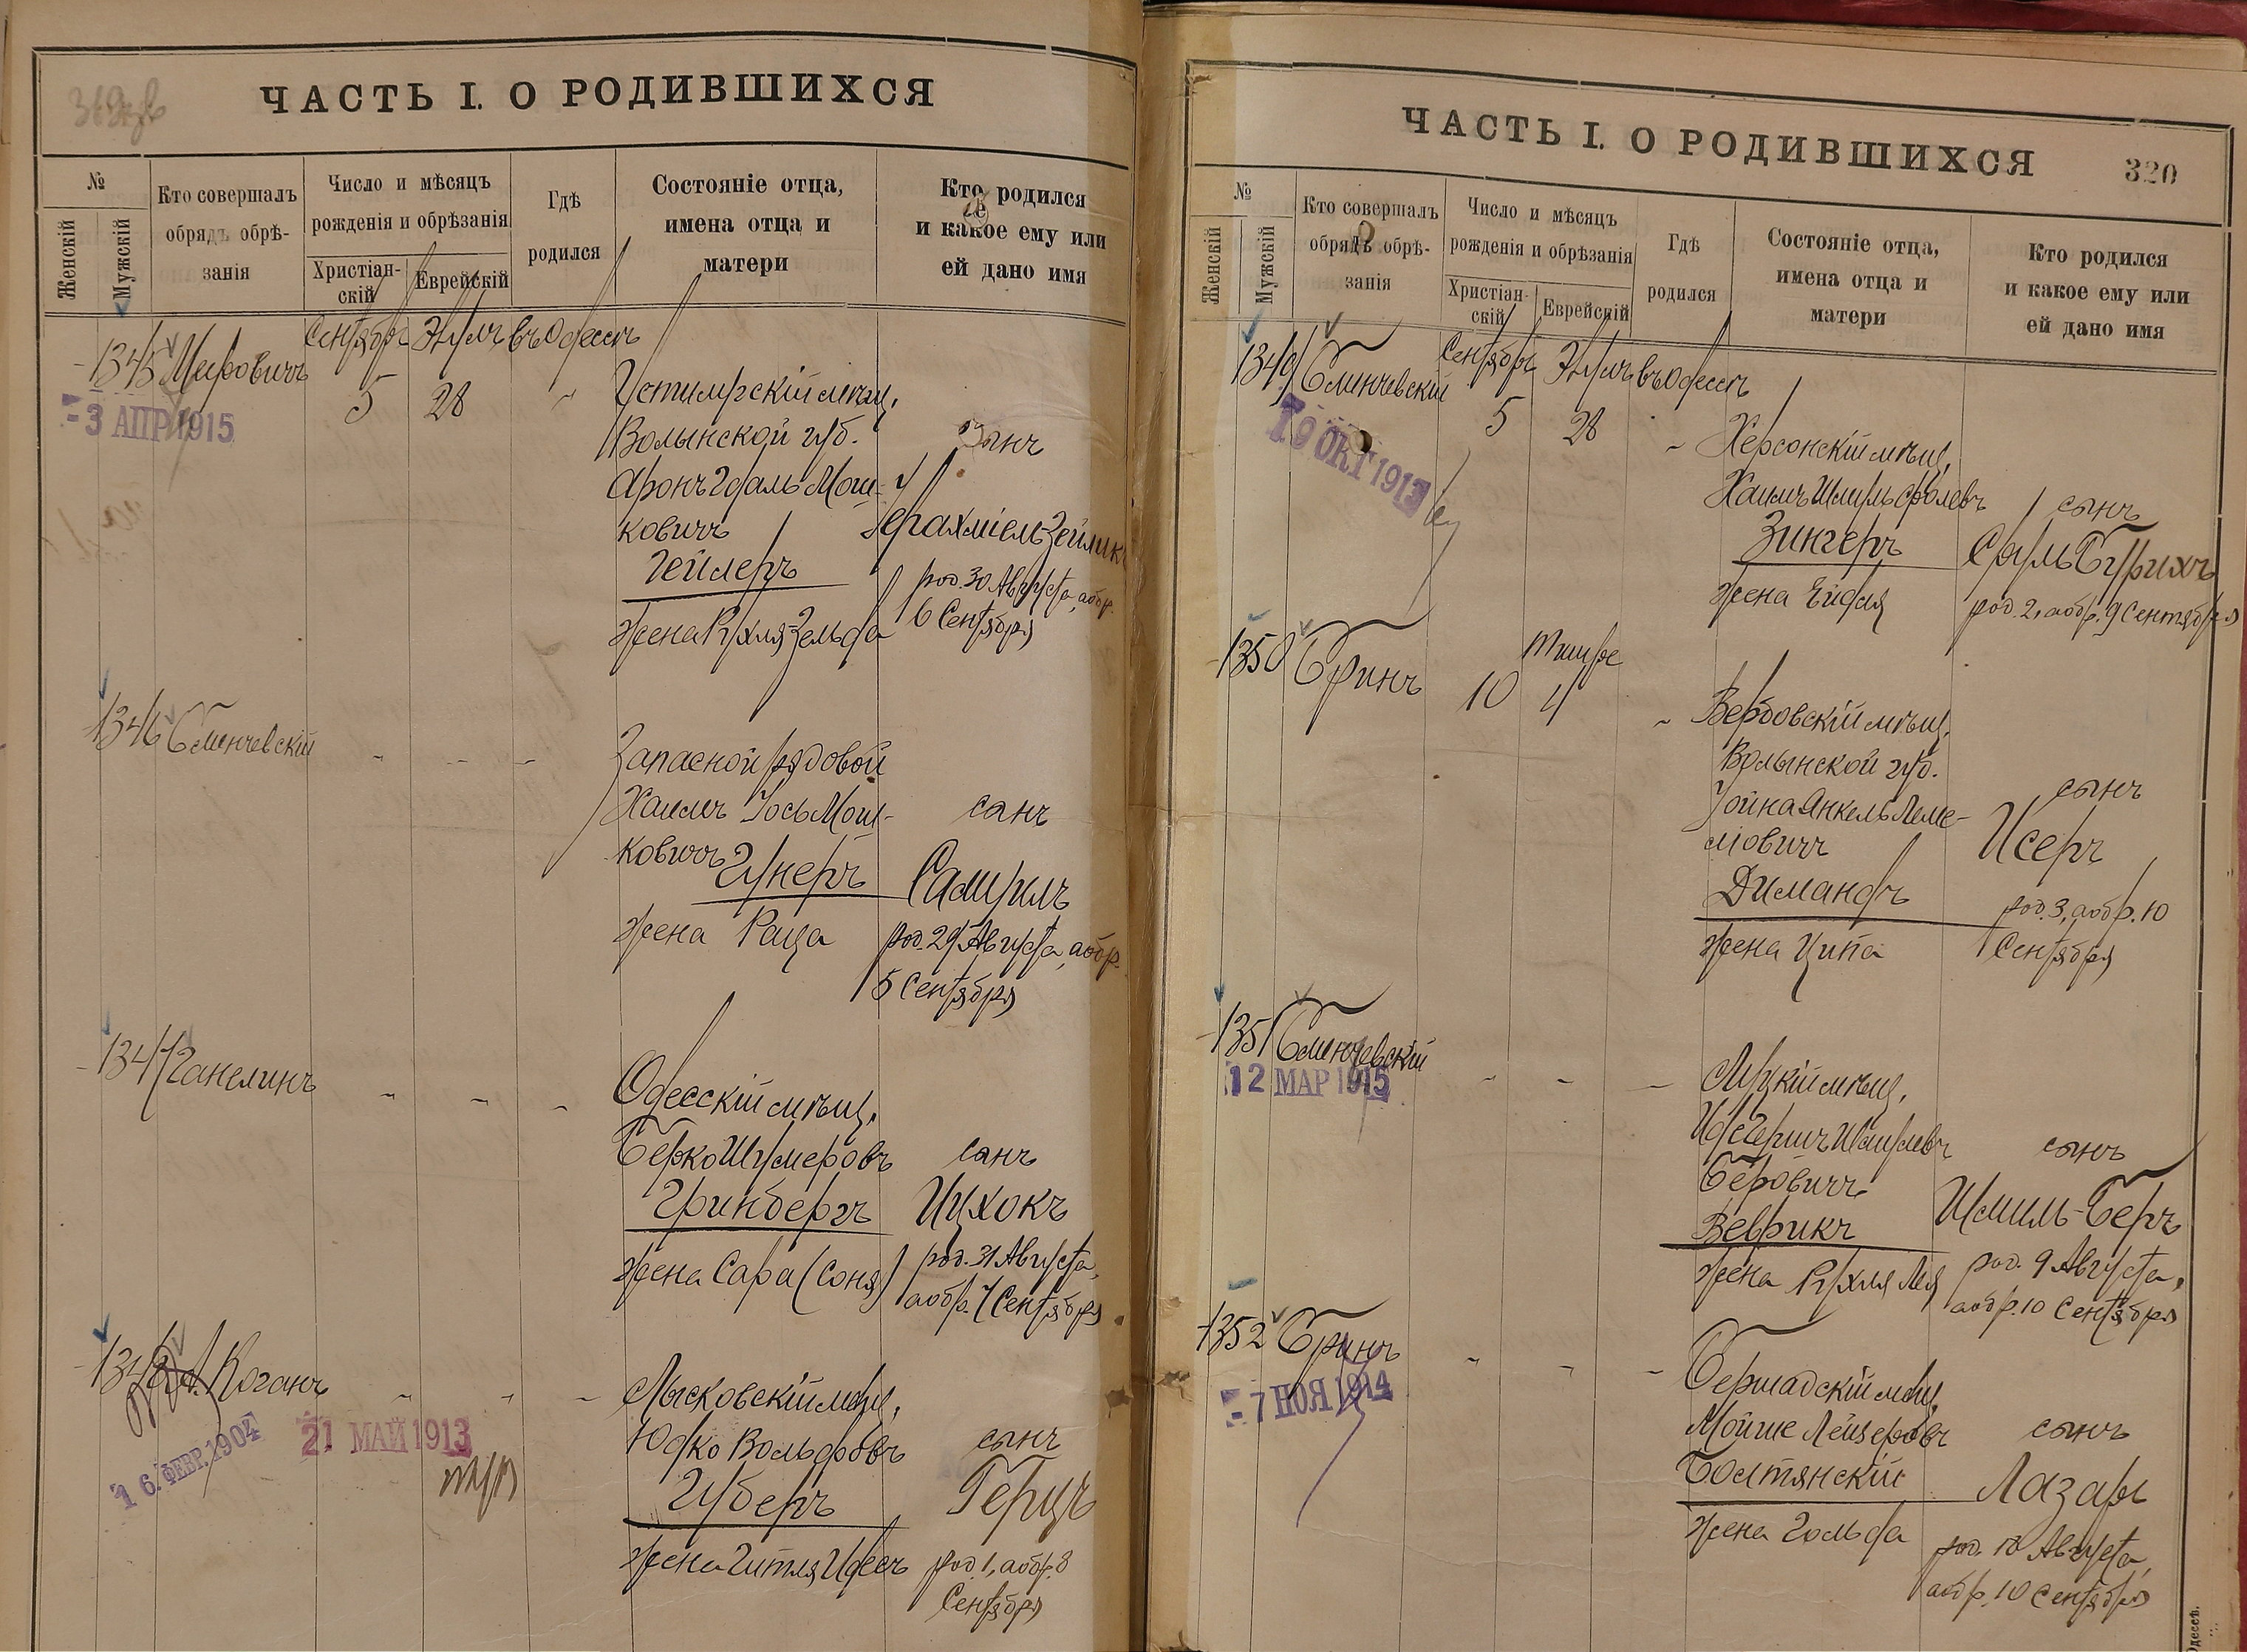 ЧАСТЬ I. О РОДИВШИХСЯ
№
Женскій
Мужскій
Кто совершалъ
обрядъ обрѣ-
занія
Число и мѣсяцъ
рожденія и обрѣзанія
Христіан-
скій
Еврейскій
Гдѣ
родился
Состояніе отца,
имена отца и
матери
Кто родился
и какое ему или
ей дано имя
1345 Меровичъ
Сентябрь Элулъ въ Одессѣ
5 28 "
- 3 АПР 1915
Волынской губ.
Аронъ Гдаль Мош-
ковичъ
Гейлеръ
жена Рухля-Зельда
сынъ
Іерахміель-Зейликъ
род. 30 Августа, а обр.
6 Сентября
1346
- - -
Запасной рядовой
Хаимъ Іось Мош-
ковичъ
Гунеръ
жена Раца
сынъ
Самуилъ
род. 29 Августа, а обр.
5 Сентября
1347 Ганелинъ
- - -
Одесскій мѣщ.
Берко Шумеровъ
Гринбергъ
жена Сара (Соня)
сынъ
Ицхокъ
род. 31 Августа,
а обр. 7 Сентября
1348 А. Коганъ
- - -
16 ФЕВР. 1904
21 МАЙ 1913
Лысковскій мѣщ.
Юдко Вольфовъ
Губеръ
жена Гитля Идесъ
сынъ
Герцъ
род. 1, а обр. 8
Сентября
ЧАСТЬ I. О РОДИВШИХСЯ
320
№
Женскій
Мужскій
Кто совершалъ
обрядъ обрѣ-
занія
Число и мѣсяцъ
рожденія и обрѣзанія
Христіан-
скій
Еврейскій
Гдѣ
родился
Состояніе отца,
имена отца и
матери
Кто родился
и какое ему или
ей дано имя
1349
Сентябрь Элулъ въ Одессѣ
5 28 "
19 ОКТ 1913
Херсонскій мѣщ.
Хаимъ Шмуль Сролевъ
Зингеръ
жена Ейдля
сынъ
Сруль Бурихъ
род. 2, а обр. 9 Сентября
1350 Бринъ
Тишре
10 4 -
Вербовскій мѣщ.
Волынской губ.
Іойна Янкель
Димандъ
жена Ципа
сынъ
Исеръ
род. 3, а обр. 10
Сентября
1351
- - -
12 МАР 1915
Луцкій мѣщ.
Беровичъ
Веврикъ
жена Рухля Лея
сынъ
Шмиль-Беръ
род. 9 Августа,
а обр. 10 Сентября
1352 Бринъ
- - -
- 7 НОЯ 1914
Бершадскій мѣщ.
Мойше Лейзеровъ
Болтянскій
жена Гольда
сынъ
Лазарь
род. 10 Августа,
а обр. 10 Сентября